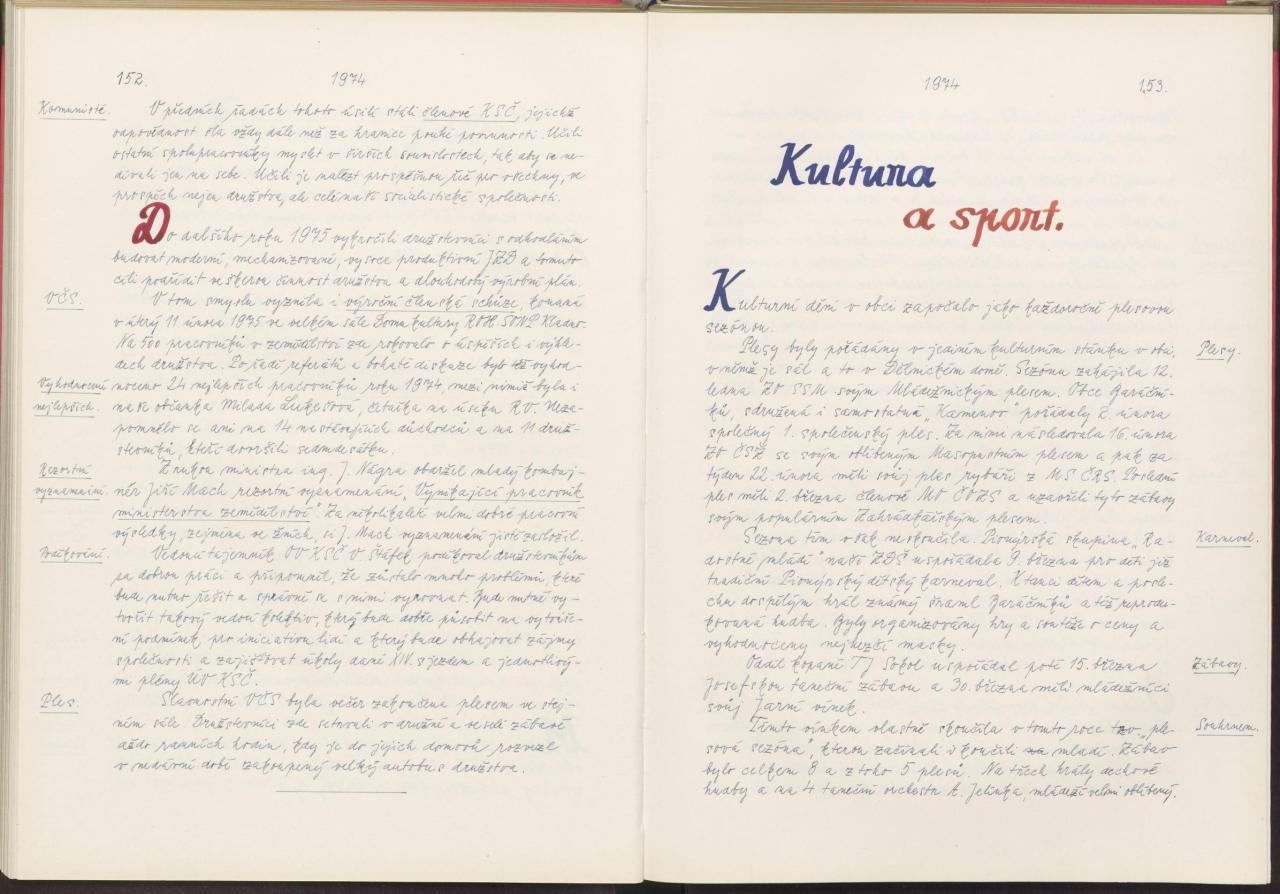 152.
1974
Komunisté.
V předních řadách tohoto úsilí stáli členové KSČ, jejichž
odpovědnost šla vždy dále než za hranice pouhé povinnosti. Učili
ostatní spolupracovníky myslet v širších souvislostech, tak aby se ne-
dívali jen na sebe. Učili je nalézt prospěšnou řeč pro všechny, ve
prospěch nejen družstva, ale celé naší socialistické společnosti.
Do dalšího roku 1975 vykročili družstevníci s odhodláním
budovat moderní, mechanizované, vysoce produktivní JZD a tomuto
cíli podřídit veškerou činnost družstva a dlouhodobý výrobní plán.
VČS.
V tom smyslu vyzněla i výroční členská schůze, konaná
v úterý 11. února 1975 ve velkém sále Domu kultury ROH SONP Kladno.
Na 500 pracovníků v zemědělství zde rokovalo o úspěších i výhle-
dech družstva. Po řadě referátů a bohaté diskuze bylo též vyhod-
Vyhodnocení
nejlepších.
noceno 24 nejlepších pracovníků roku 1974, mezi nimiž byla i
naše občanka Milada Lukešová, četařka na úseku RV. Neza-
pomnělo se ani na 14 nastávajících důchodců a na 11 druž-
stevníků, kteří dovršili sedmdesátku.
Rezortní
vyznamenání.
Z rukou ministra ing. J. Nágra obdržel mladý kombaj-
nér Jiří Mach rezortní vyznamenání „Vynikající pracovník
ministerstva zemědělství“. Za několikaleté velmi dobré pracovní
výsledky, zejména ve žních, si J. Mach vyznamenání jistě zasloužil.
Poděkování.
Vedoucí tajemník OV KSČ V. Štáfek poděkoval družstevníkům
za dobrou práci a připomněl, že zůstalo mnoho problémů, které
bude nutno řešit a správně se s nimi vyrovnat. Bude nutné vy-
tvořit takový vedoucí kolektiv, který bude dobře působit na vytváře-
ní podmínek pro iniciativu lidí a který bude obhajovat zájmy
společnosti a zajišťovat úkoly dané XIV. sjezdem a jednotlivý-
mi plény ÚV KSČ.
Ples.
Slavnostní VČS byla večer zakončena plesem ve stej-
ném sále. Družstevníci zde setrvali v družné a veselé zábavě
až do ranních hodin, kdy je do jejich domovů rozvezl
v nedávné době zakoupený velký autobus družstva.
1974
153.
Kultura
a sport.
Kulturní dění v obci započalo jako každoročně plesovou
sezónou.
Plesy.
Plesy byly pořádány v jediném kulturním stánku v obci,
v němž je sál a to v Dělnickém domě. Sezónu zahájila 12.
ledna ZO SSM svým Mládežnickým plesem. Obce Baráční-
ků, sdružená i samostatná „Kamenov“ pořádaly 2. února
společný 1. společenský ples. Za nimi následovala 16. února
ZO ČSŽ se svým oblíbeným Masopustním plesem a pak za
týden 22. února měli svůj ples rybáři z MS ČRS. Poslední
ples měli 2. března členové MO ČOZS a uzavřeli tyto zábavy
svým populárním Zahrádkářským plesem.
Karneval.
Sezona tím však neskončila. Pionýrská skupina „Ra-
dostné mládí“ naší ZDŠ uspořádala 9. března pro děti již
tradiční Pionýrský dětský karneval. K tanci dětem a posle-
chu dospělým hrál známý šraml Baráčníků a též reprodu-
kovaná hudba. Byly organizovány hry a soutěže o ceny a
vyhodnoceny nejhezčí masky.
Zábavy.
Oddíl kopané TJ Sokol uspořádal poté 15. března
Josefskou taneční zábavu a 30. března měli mládežníci
svůj Jarní vínek.
Souhrnem.
Tímto vínkem vlastně skončila v tomto roce tzv. „ple-
sová sezóna“, kterou začínali i končili mladí. Zábav
bylo celkem 8 a z toho 5 plesů. Na třech hrály dechové
hudby a na 4 taneční orchestr A. Jelínka, mládeží velmi oblíbený.